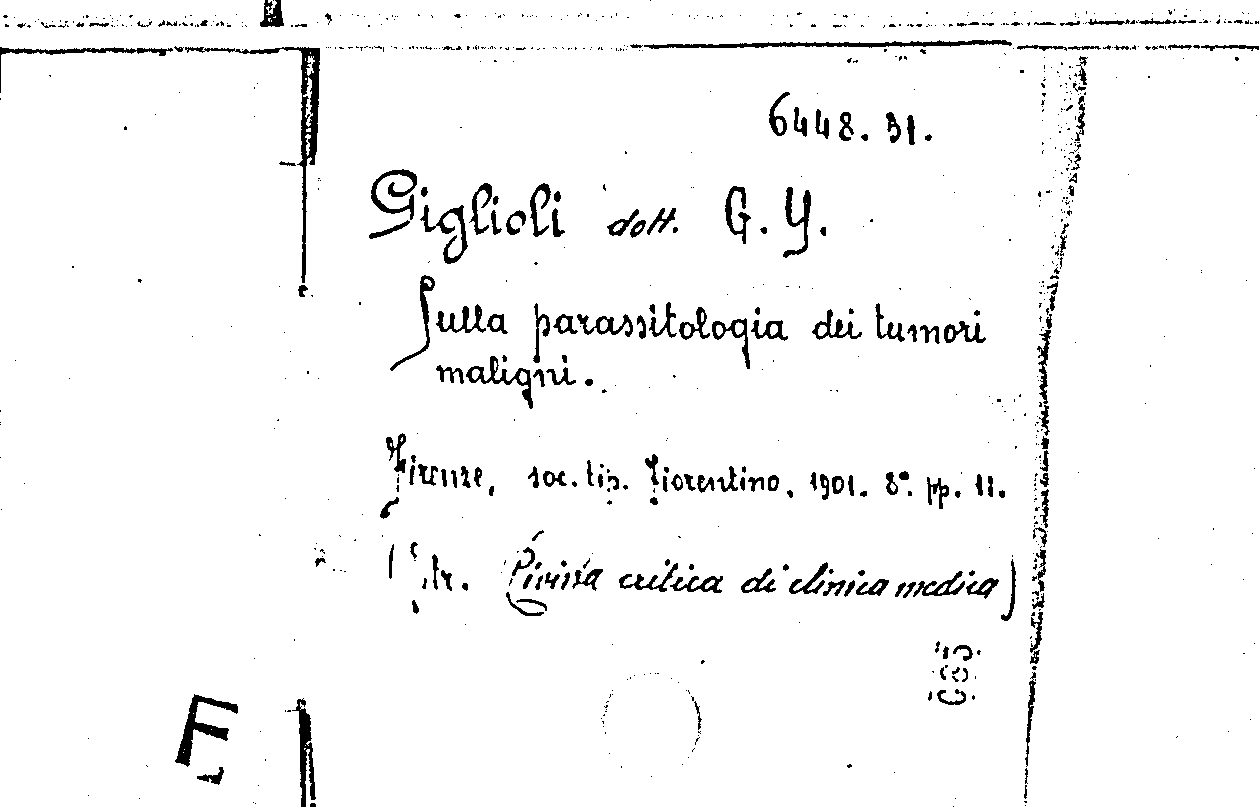 6448.31.
Giglioli dott. G. Y.
Sulla parassitologia dei tumori
maligni.
Firenze, soc. tip. Fiorentino, 1901. 8°. pp. 11.
(Estr. Rivista critica di clinica medica)